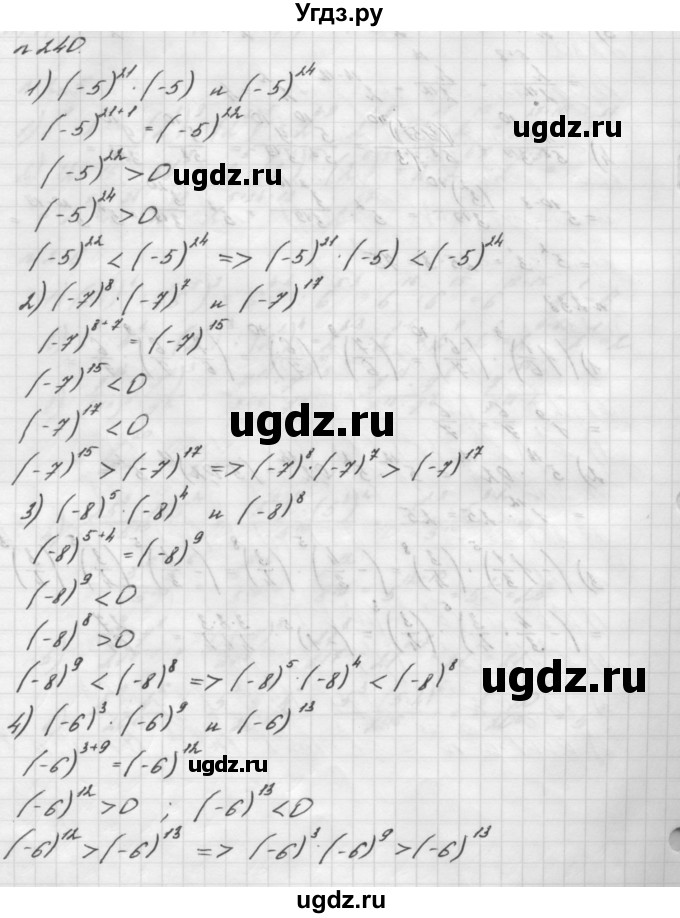 Угдз.ру
n 240.
1) (-5)^21 · (-5) и (-5)^24
(-5)^21+1 = (-5)^22
ugdz.ru
(-5)^22 > 0
ugdz.ru
(-5)^24 > 0
(-5)^22 < (-5)^24 => (-5)^21 · (-5) < (-5)^24
2) (-7)^8 · (-7)^7 и (-7)^17
(-7)^8+7 = (-7)^15
(-7)^15 < 0
(-7)^17 < 0
ugdz.ru
(-7)^15 > (-7)^17 => (-7)^8 · (-7)^7 > (-7)^17
3) (-8)^5 · (-8)^4 и (-8)^8
(-8)^5+4 = (-8)^9
(-8)^9 < 0
(-8)^8 > 0
(-8)^9 < (-8)^8 => (-8)^5 · (-8)^4 < (-8)^8
ugdz.ru
4) (-6)^3 · (-6)^9 и (-6)^13
(-6)^3+9 = (-6)^12
ugdz.ru
(-6)^12 > 0 ; (-6)^13 < 0
(-6)^12 > (-6)^13 => (-6)^3 · (-6)^9 > (-6)^13
ugdz.ru